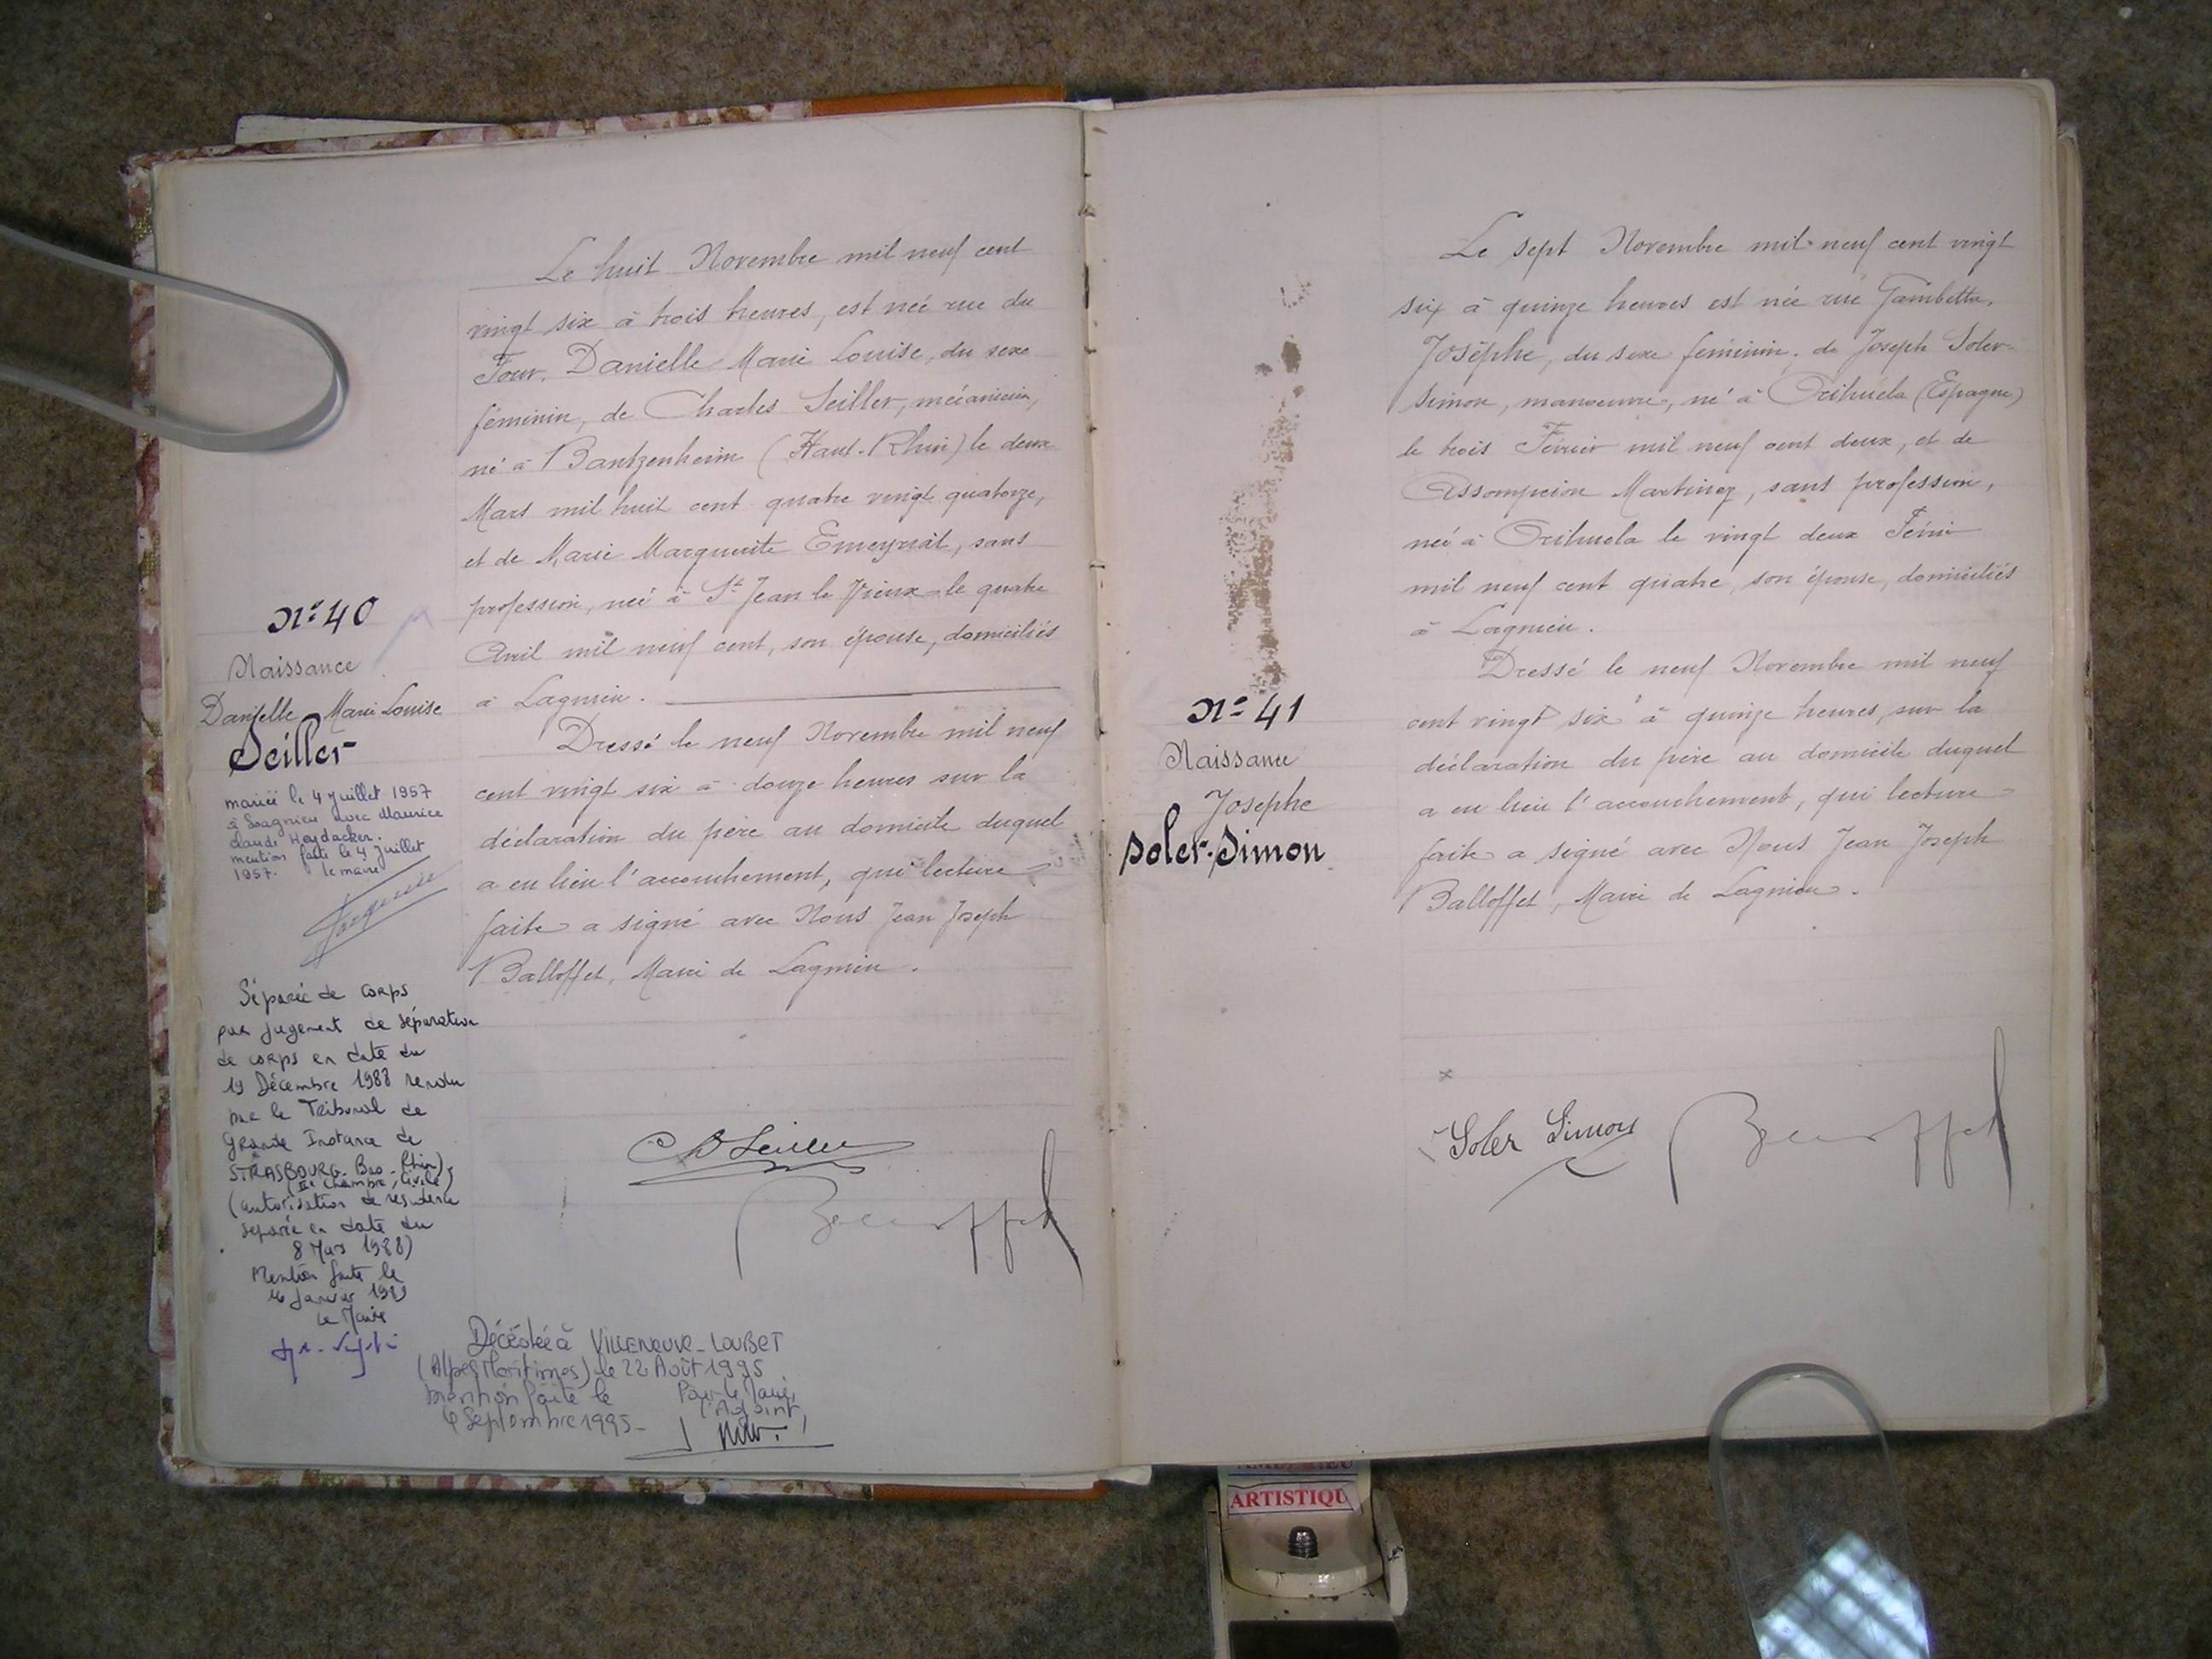 Le huit Novembre mil neuf cent
vingt six à trois heures, est née rue du
Four, Danielle Marie Louise, du sexe
féminin, de Charles Seiller, mécanicien,
né à Bantzenheim (Haut-Rhin) le deux
Mars mil huit cent quatre vingt quatorze,
et de Marie Marguerite Emeyriat, sans
profession, née à St Jean le Vieux le quatre
Avril mil neuf cent, son épouse, domiciliés
à Lagnieu.
Dressé le neuf Novembre mil neuf
cent vingt six à douze heures sur la
déclaration du père au domicile duquel
a eu lieu l'accouchement, qui lecture
faite a signé avec Nous Jean Joseph
Balloffet, Maire de Lagnieu.
N° 40
Naissance
Danielle Marie Louise
Seiller
mariée le 4 juillet 1957
à Lagnieu avec Maurice
Claude Heydacker.
mention faite le 4 juillet
1957. le maire
Séparée de corps
par jugement de séparation
de corps en date du
19 Décembre 1988 rendu
par le Tribunal de
Grande Instance de
STRASBOURG. Bas-Rhin),
(IIe Chambre Civile)
(autorisation de résidence
séparée en date du
8 Mars 1988)
Mention faite le
Janvier 1989
Le Maire
Décédée à VILLENEUVE-LOUBET
(Alpes Maritimes) le 22 Août 1995
mention faite le Pour le Maire,
Septembre 1995- l'Adjoint,
C Seiller
Balloffet
Le sept Novembre mil neuf cent vingt
six à quinze heures est née rue Gambetta,
Josèphe, du sexe féminin, de Joseph Soler-
Simon, manoeuvre, né à Orihuela (Espagne)
le trois Février mil neuf cent deux, et de
Assompcion Martinez, sans profession,
née à Orihuela le vingt deux Février
mil neuf cent quatre, son épouse, domiciliés
à Lagnieu.
Dressé le neuf Novembre mil neuf
cent vingt six à quinze heures, sur la
déclaration du père au domicile duquel
a eu lieu l'accouchement, qui lecture
faite a signé avec Nous Jean Joseph
Balloffet, Maire de Lagnieu.
N° 41
Naissance
Josephe
Soler-Simon
Soler Simon
Balloffet
ARTISTIQU